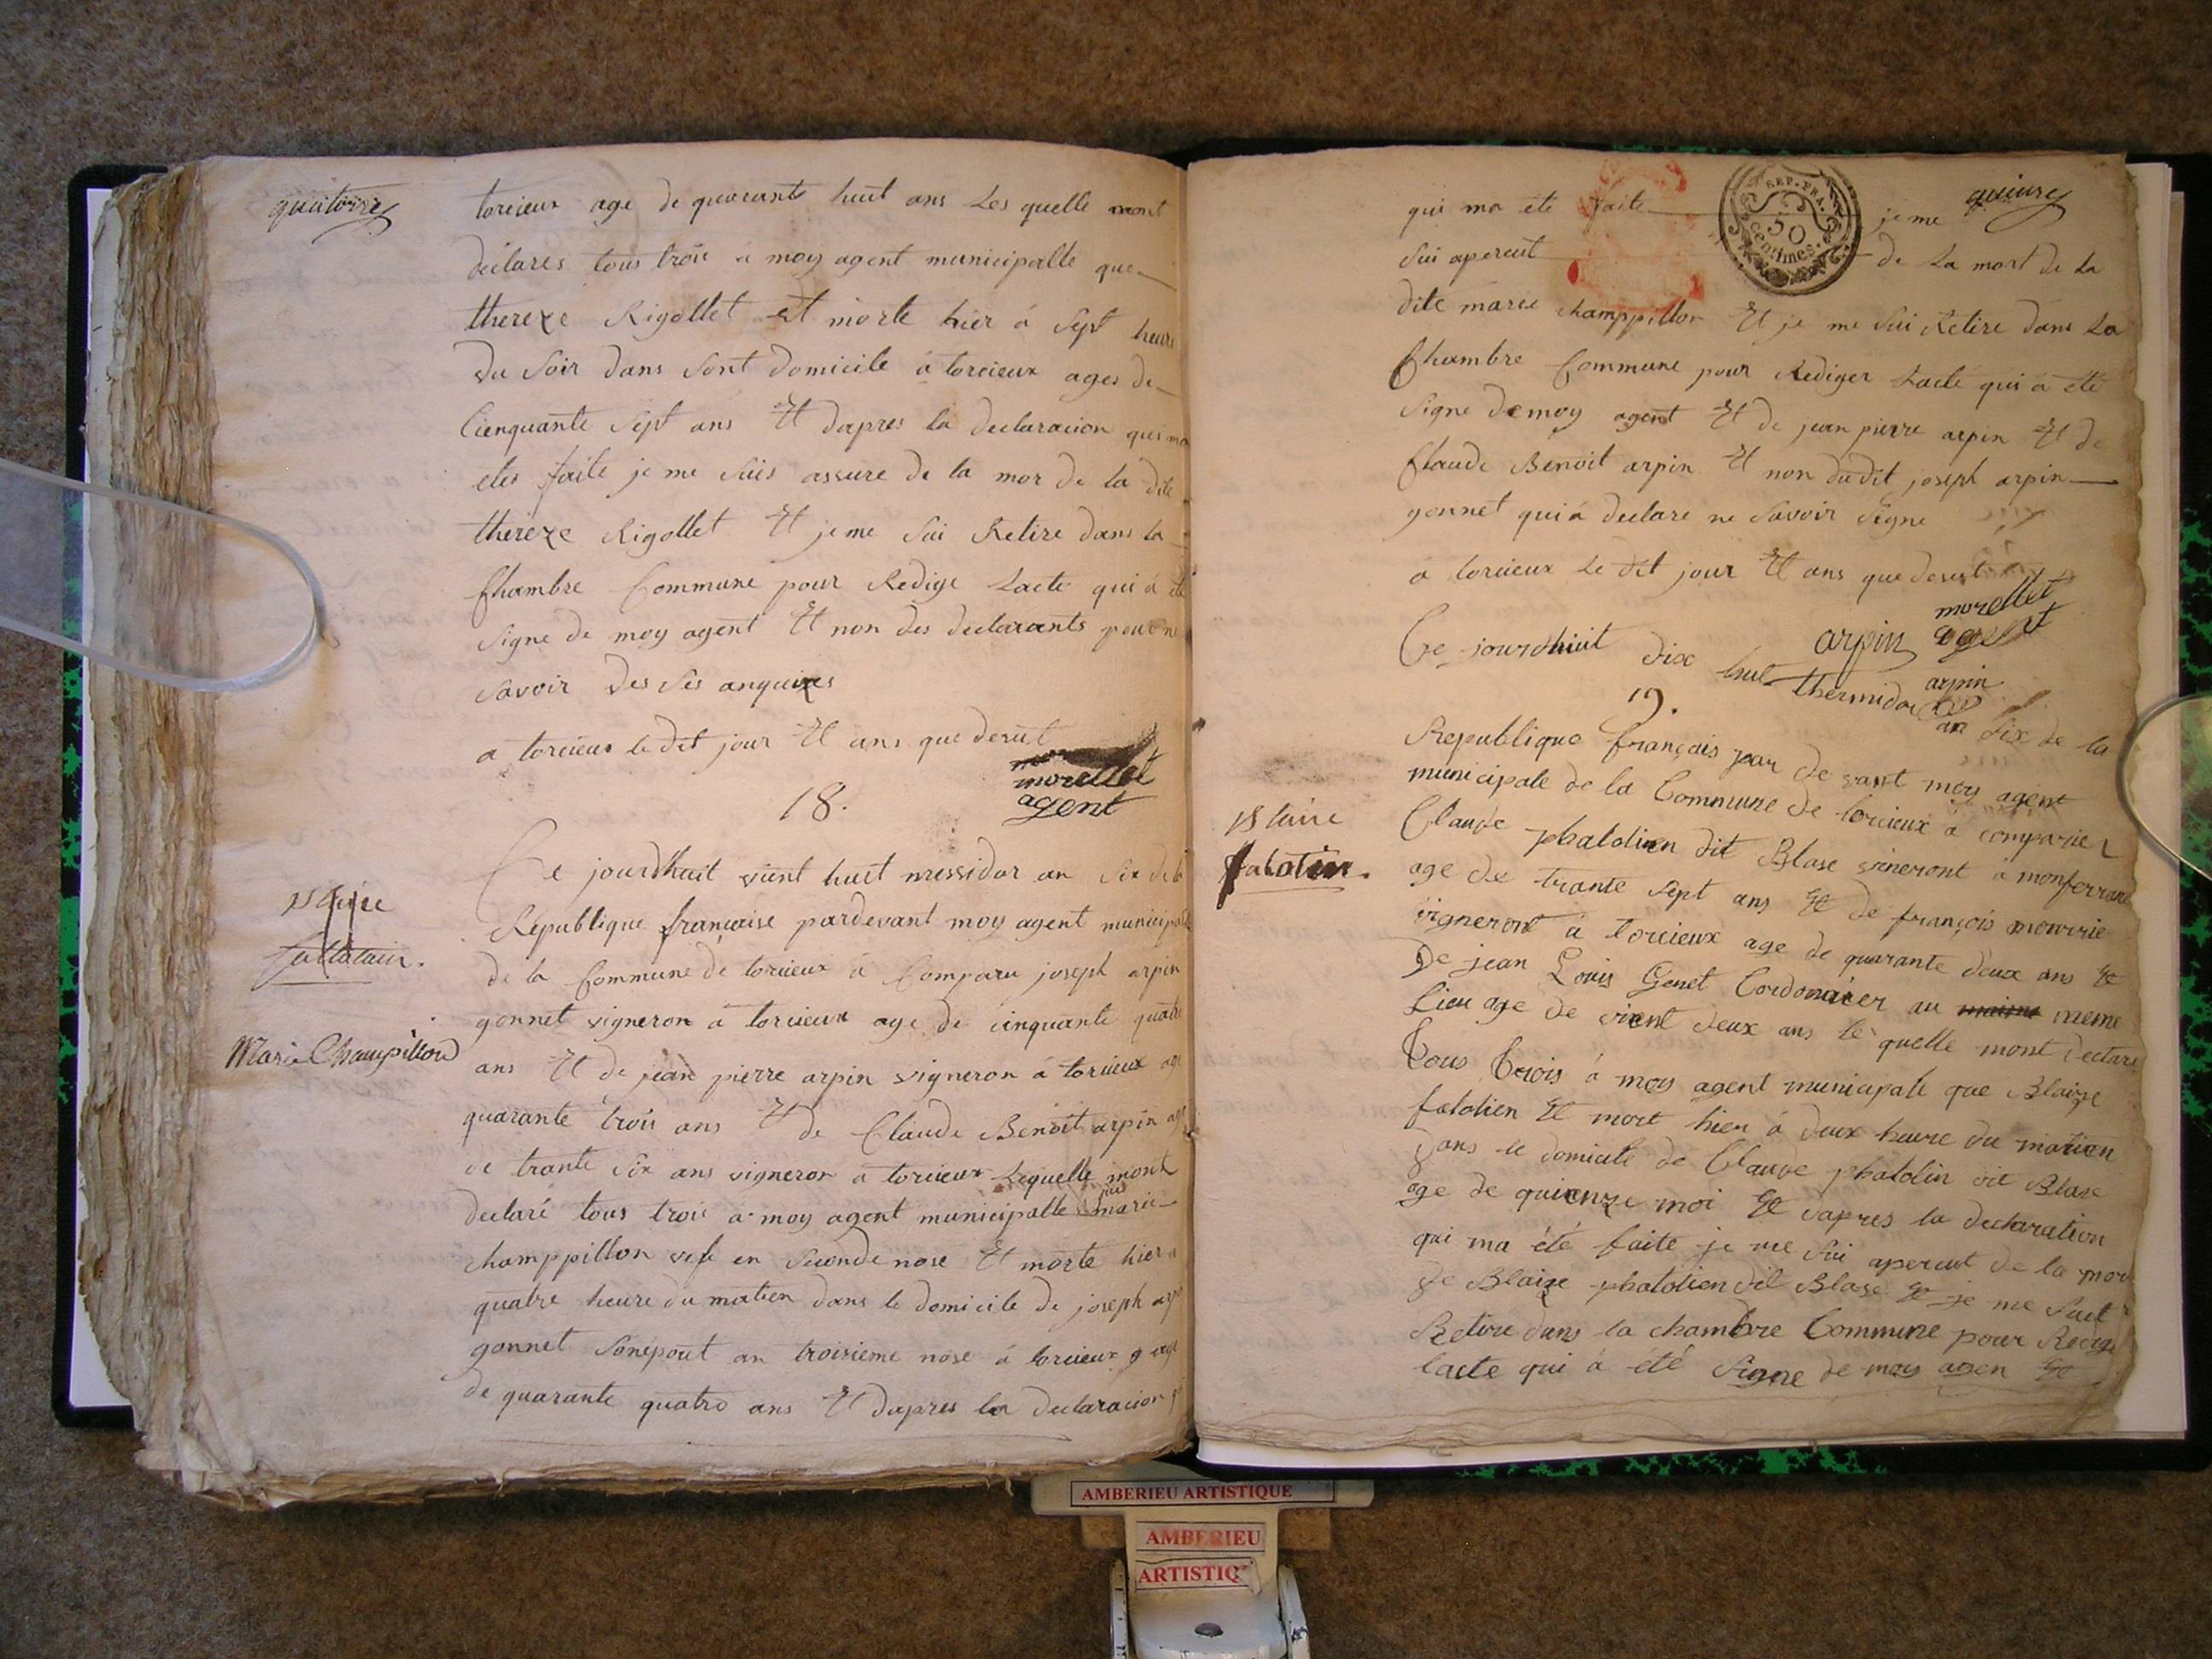 quatorze
torcieux age de quarante huit ans Les quelle mont
déclares tous troie a moy agent municipalle que
thereze Rigollet et morte hier á Sept heure
du Soir dans Sont domicile á torcieux ages de
Cienquante Sept ans Et dapres la declaracion qui ma
etes faite je me Suis assure de la mor de la dite
théreze Rigollet Et je me Sui Retire dans la
Chambre Commune pour Redige Lacte qui á ete
Signe de moy agent Et non des declarants pour ne
Savoir des Ses anquixes
a torcieux le dit jour Et ans que desut
morellet
agent
18.
Blaise
fallatain.
Marie Champillon
Ce jourdhuit vient huit messidor an Six de la
Republique francaise pardevant moy agent municipalle
de la Commune de torcieux á Comparu joseph arpin
gonnet vigneron á torcieux age de cinquante quatre
ans Et de jean pierre arpin vigneron á torcieux age
quarante trois ans Et de Claude Benoit arpin age
de trante Six ans vigneron a torcieux Lequelle mont
declaré tous troie a moy agent municipalle que marie
champpillon vefe en Seconde nose Et morte hier a
quatre heure du matien dans le domicile de joseph arpin
gonnet Sonépout an troisieme nose á torcieux age
de quarante quatro ans Et dapres la declaracion
quinze
REP. FRA.
50
centimes.
qui ma ete faite je me
Sui apercut de La mort de La
dite marie champpillon Et je me Sui Retire dans La
Chambre Commune pour Rediger Lacte qui á ete
Signe de moy agent Et de jean pierre arpin Et de
Claude Benoit arpin Et non du dit joseph arpin
gonnet qui á declare ne Savoir Signe
a torcieux Le dit jour Et ans que desust
morellet
agent
arpin
arpin
19.
Ce jourdhuit dix huit thermidor an Six de la
Republique français par de vant moy agent
municipale de la Commune de torcieux a comparier
Blaise
falotin.
Claude phalolien dit Blase vineront á monferrand
age de trante Sept ans Et de françois mourrie
vigneront á torcieux age de quarante deux ans Et
De jean Louis Genet Cordonnier au maime meme
Lieu age de vient deux ans le quelle mont declare
Tous trois á moy agent municipale que Blaize
falolien Et mort hier á deux heure du matien
dans le domicile de Claude phalolin dit Blase
age de quienze moi Et dapres la declaration
qui ma été faite je me Sui apercut de la mor
de Blaize phalolien dit Blase Et je me Suit
Retire dans la chambre Commune pour Redige
lacte qui á été Signe de moy agen Et
AMBERIEU ARTISTIQUE
AMBERIEU
ARTISTIQ